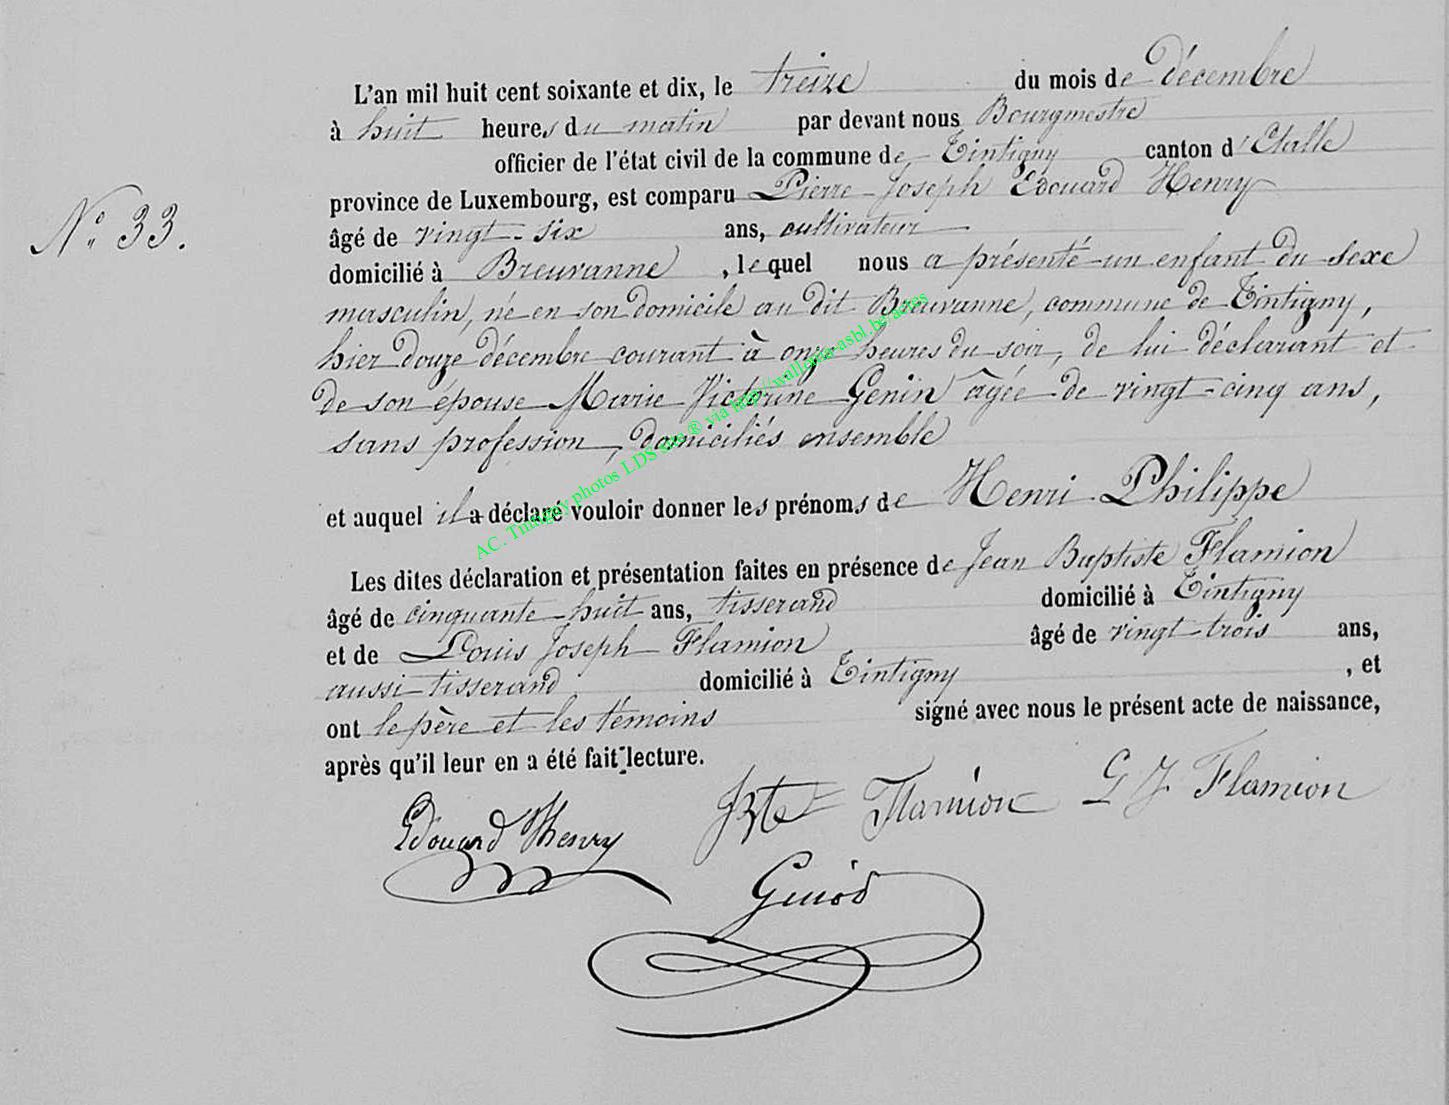 L'an mil huit cent soixante et dix, le treize du mois de décembre
à huit heures du matin par devant nous Bourgmestre
officier de l'état civil de la commune de Tintigny canton d'Etalle
province de Luxembourg, est comparu Pierre Joseph Edouard Henry
N° 33.
âgé de vingt-six ans, cultivateur
domicilié à Breuvanne, lequel nous a présenté un enfant du sexe
masculin, né en son domicile au dit Breuvanne, commune de Tintigny,
hier douze décembre courant à onze heures du soir, de lui déclarant et
de son épouse Marie Victorine Genin âgée de vingt-cinq ans,
sans profession, domiciliés ensemble
et auquel il a déclaré vouloir donner les prénoms de Henri Philippe
Les dites déclaration et présentation faites en présence de Jean Baptiste Flamion
âgé de cinquante-huit ans, tisserand domicilié à Tintigny
et de Louis Joseph Flamion âgé de vingt-trois ans,
aussi tisserand domicilié à Tintigny, et
ont le père et les témoins signé avec nous le présent acte de naissance,
après qu'il leur en a été fait lecture.
Edouard Henry JBte Flamion L J Flamion
AC. Tintigny photos LDS ® via http://wallonia-asbl.be/actes